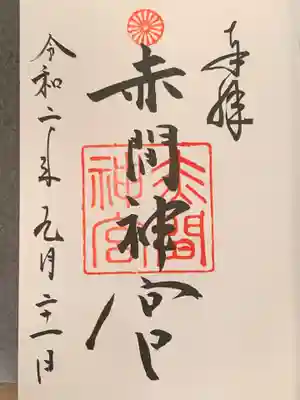 奉拝
赤間神宮
赤間神宮
令和二年九月二十一日